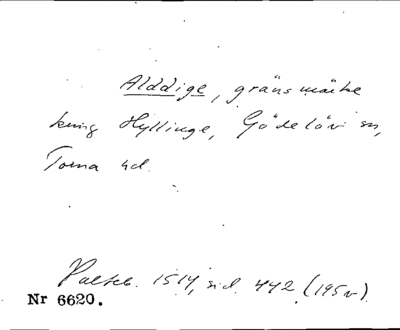 Alddige, gränsmärke
kring Hyllinge, Gödelöv sn,
Torna hd.
Palteb. 1514, sid. 442 (195v)
Nr 6620.